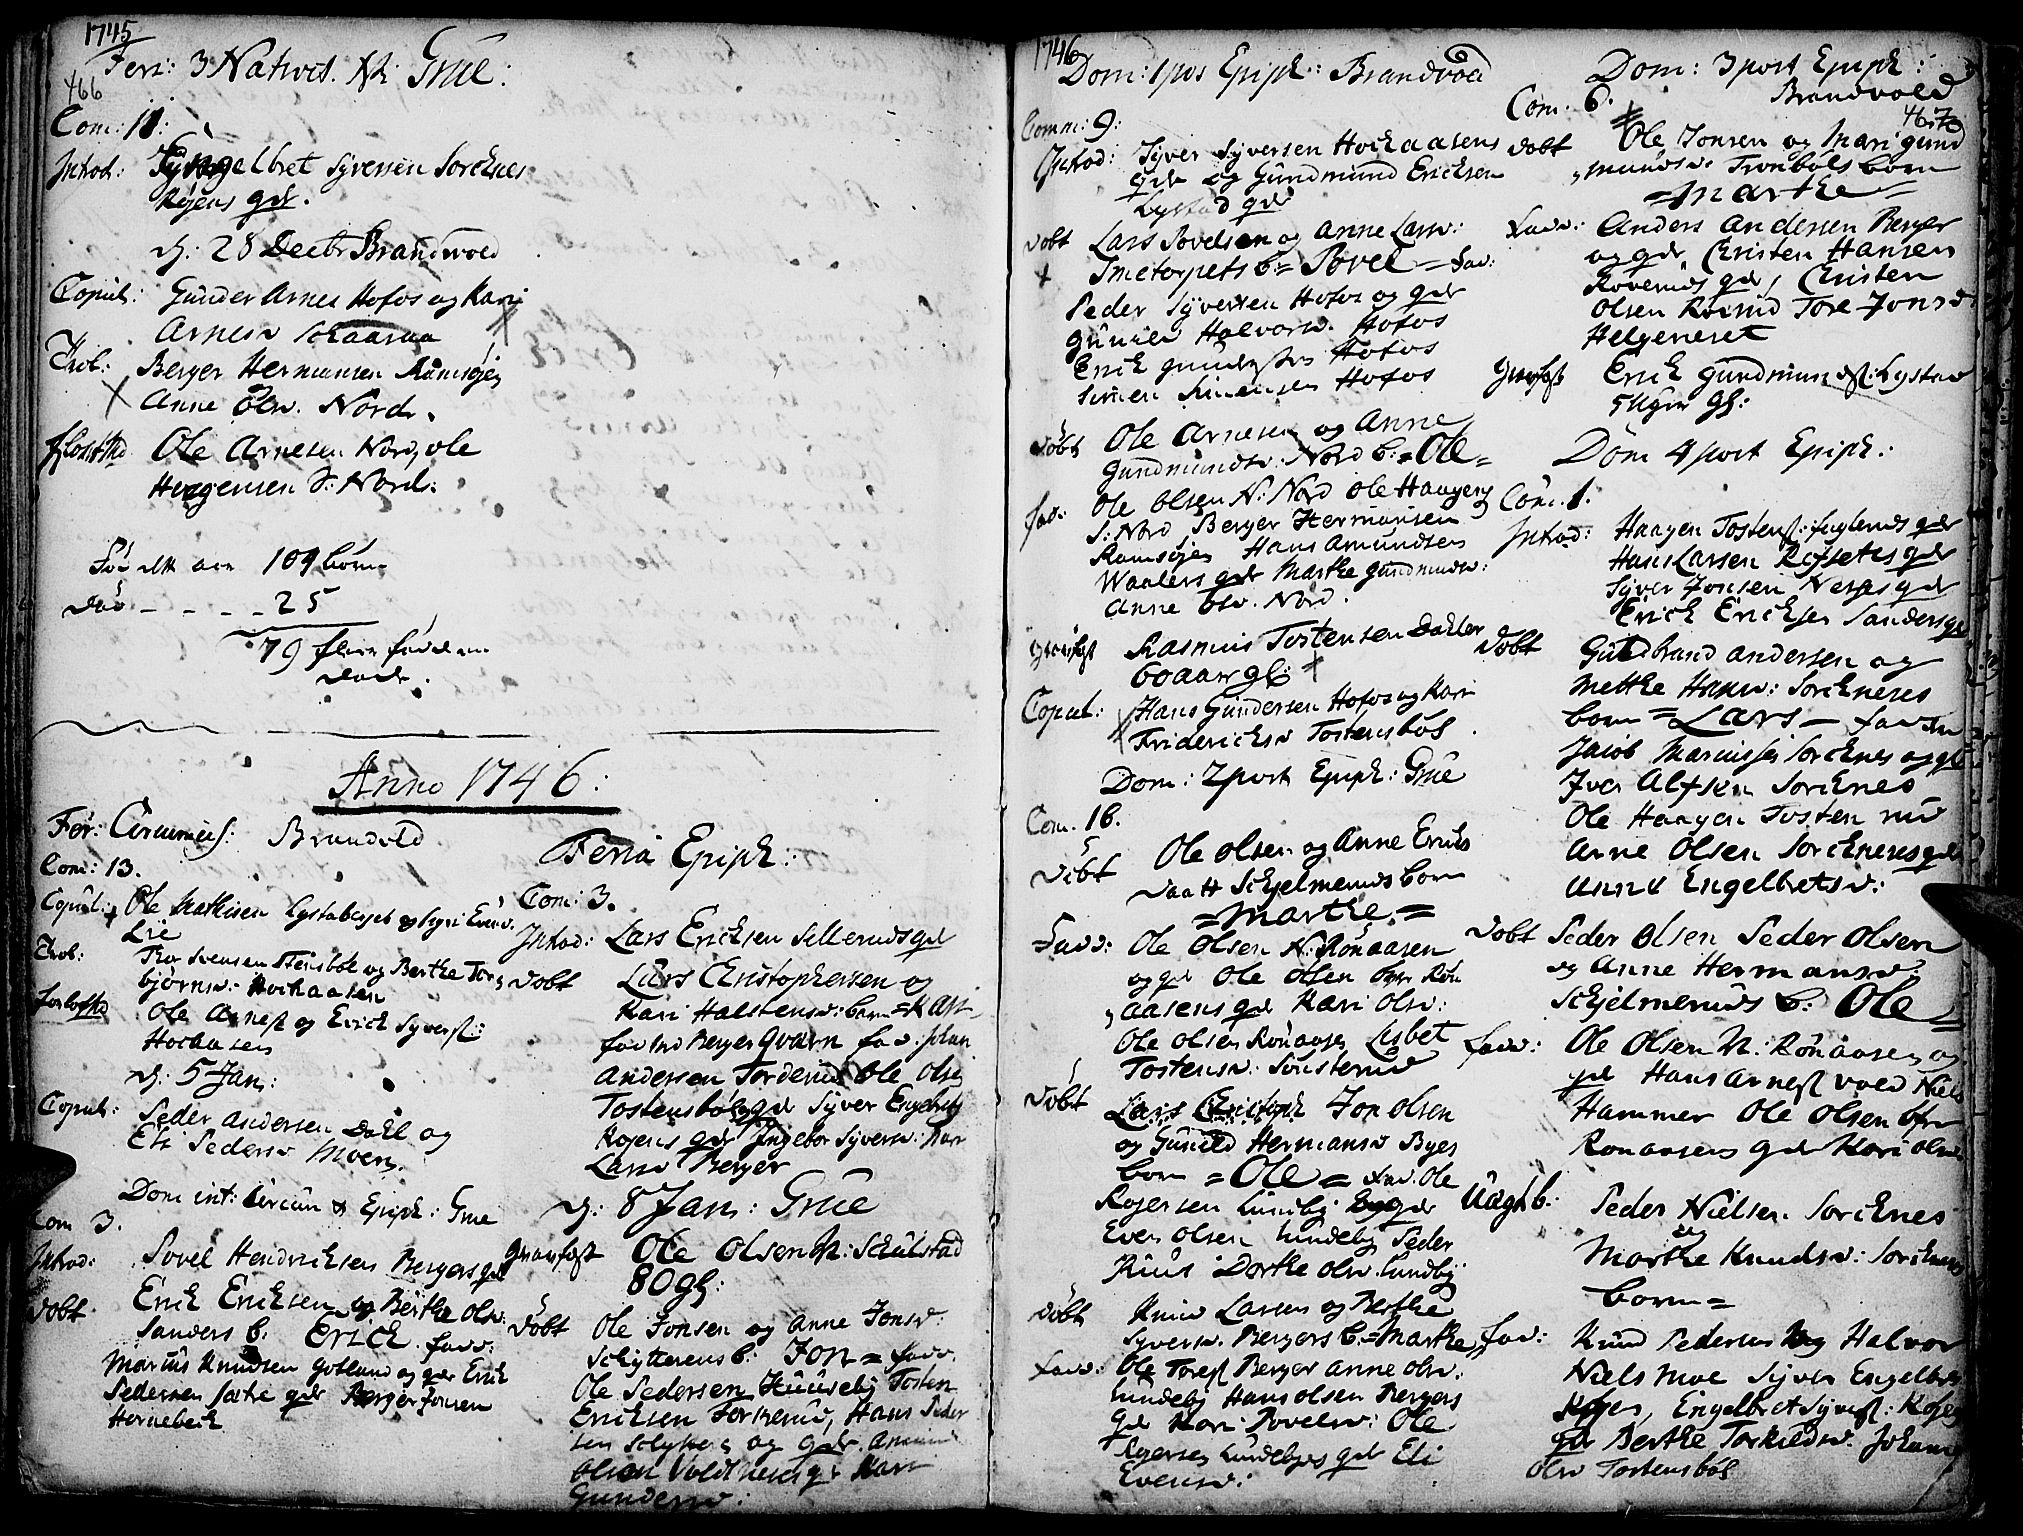 1745
Feri: 3 Nativit. Xti Grue:
466
Com: 11:
Introd: Engelbret Syversen Sorcknes
Røjens qde.
d: 28 Decbr Brandvold
Copul: Gunder Arnes Hofos og Kari
Arnesd Schaaraa
Trol: Berger Hermansen Ramsøjen
Anne Olsd. Nord.
Ole Arnesen Nord, Ole
Haagensen S: Nord:
109 børn
25
79 flere fødde en
døde.
Anno 1746:
Fer: Circumcis: Brandvold
Com: 13.
Copul: Ole Mathisen Lystaberget og Syri Evensd.
Lie
Trol: Tho Svensen Stensbøl og Berthe Tor
bjørnsd: Hochaasen
Forlofvd Ole Arnesß og Erich Syversß:
Hochaasen
d: 5 Jan:
Copul: Peder Andersen Dahl og
Eli Pedersd Moen.
Dom int: Circum & Epiph: Grue
Com 3.
Introd: Povel Hendrichsen Bergers qde
Døbt Erich Erichsen og Berthe Olsd:
Sanders b. Erich. fadd:
Marius Knudsen Gotland og qde Erich
Pedersen Sætre qde Berger Jonsen
Hernebech
Feria Epiph:
Com: 3.
Introd: Lars Erichsen Selleruds qde
Døbt Lars Christophersen og
Kari Halstensd: barn = Kari
Berger Qvarn fad: Johan
Andersen Torderud Ole Olsen
Tostensbøl qde Syver Engelbrets
Røjens qde Ingebor Syversd: Kari
Larsd Berger
d: 8 Jan: Grue
Gravfæst Ole Olsen N: Schulstad
80 gl:
Døbt Ole Jonsen og Anne Jonsd:
Schytterens b: Jon = fadd:
Ole Pedersen Huuseby Tosten
Erichsen Torkerud, Hans Peder
sen Schytteren og qde. Amund
Olsen Voldnesets qde Kari
Gundersd:
1746
Dom: 1 pos Epiph: Brandvold
Comm: 9:
Introd: Syver Syversen Hochaasens
qde og Gundmund Erichsen
Lystad qde
Døbt Lars Povelsen og Anne Larsd:
Smetorpets b: = Povel = fad:
Peder Syversen Hofos og qde
Gunder Halvorsd. Hofos
Erich Gundersßn Hofos
Simen Simensen Hofos
Døbt Ole Arnesen og Anne
Gundmundsd: Nord b: = Ole =
fad: Ole Olsen N: Nord Ole Haagens
S: Nord, Berger Hermansen
Ramsøjen Hans Amundsen
Waalers qde Marthe Gundmunsd:
Anne Olsd. Nord.
Gravfæst Rasmus Tostensen Dahler
60 aar gl:
Copul: Hans Gundersen Hofos og Kari
Friderichsd Tostensbøl
Dom: 2 post Epiph: Grue
Com. 16.
Døbt Ole Olsen og Anne Erichs
daatt Schjelmeruds barn
= Marthe. =
Fadd: Ole Olsen N: Rønaasen
og qde Ole Olsen Øfre Røn
aasens qde Kari Olsd:
Ole Olsen Rønaasen Lisbet
Tostensd: Sønsterud
Døbt Jon Olsen
og Gunild Hermansd Byes
barn = Ole = fad. Ole
Rojersen Lundby qde
Even Olsen Lundeby Peder
Kius Dorthe Olsd. Lundby
Døbt Knud Larsen og Berthe
Syversd. Bergers b. = Marthe
fadd: Ole Toresß Berger Anne Olsd:
Lundeby Hans Olsen Bergers
qde Kari Povelsd: Ole
Rojersen Lundebyes qde Eli
Evensd:
Dom: 3 post Epiph:
Brandvold
467
Com: 6.
Døbt Ole Jonsen og Mari Gund
mundsd: Trønbøls barn
= Marthe =
Fadd: Anders Andersen Berger
og qde Christen Hansen
Roveruds qde, Christen
Olsen Roverud Tore Jonsd
Helgeneset
Gravfæst Erich Gundmundsß: Lystad
5 uger gl:
Dom 4 post Epiph:
Com. 1.
Introd: Haagen Tostensß: Fugleruds qde
Hans Larsen Rofsetes qde
Syver Jonsen Nesjes qde
Erich Erichsen Sanders qde
Døbt Guldbrand Andersen og
Methe Hansd: Sorcknesets
barn = Lars = faddr
Jacob Mariusßen Sorcknes og qde
Iver Alfsen Sorcknes
Ole Haagen Tosten rud
Arne Olsen Sorcknesets qde
Anne Engelbretsd:
Døbt Peder Olsen
og Anne Hermansd:
Schjelmeruds b. Ole =
fadd: Ole Olsen N: Rønaasen og
qde Hans Arnesß Vold Niels
Hammer Ole Olsen Øfre
Rønaasens qde Kari Olsd
Uægt b: Peder Nielsen Sorcknes
og
Marthe Knudsd: Sorcknes
barn =
fad: Knud Pedersen Halvor
Niels Moe Syver Engelbrets
Røjen, Engelbret Syversß: Røjen
qde Berthe Torkildsd. Johanne
Olsd Tostensbøl